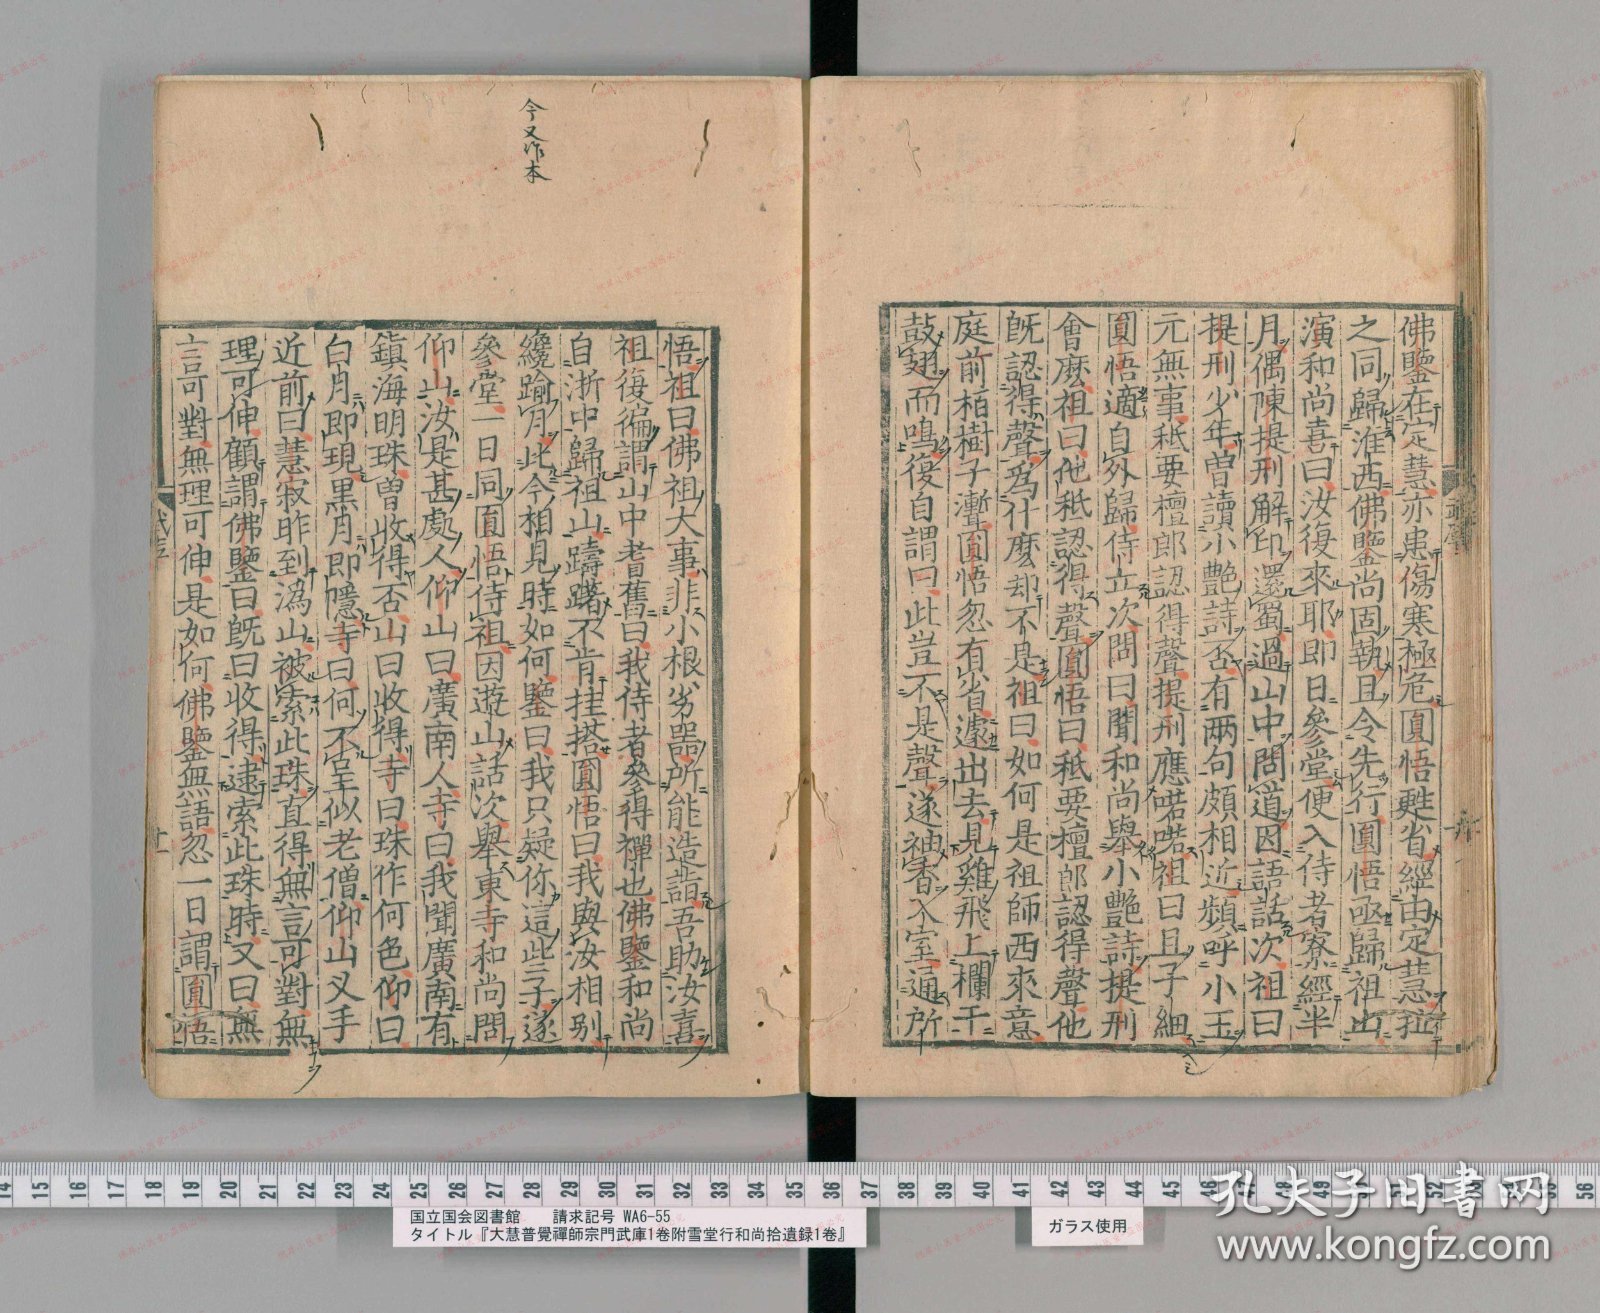 佛鑒在定慧亦患傷寒極危圓悟甦省經由定慧拉
之同歸淮西佛鑒尚固執且令先行圓悟亟歸祖山
演和尚喜曰汝復來耶即日參堂便入侍者寮經半
月偶陳提刑解印還蜀過山中問道因語話次祖曰
提刑少年曾讀小艷詩否有兩句頗相近頻呼小玉
元無事秖要檀郎認得聲提刑應喏喏祖曰且子細
圓悟適自外歸侍立次問曰聞和尚舉小艷詩提刑
會麼祖曰他秖認得聲圓悟曰秖要檀郎認得聲他
既認得聲為什麼却不是祖曰如何是祖師西來意
庭前栢樹子漸圓悟忽有省遽出去見雞飛上欄干
鼓翅而鳴復自謂曰此豈不是聲遂袖香入室通所
悟祖曰佛祖大事非小根劣器所能造詣吾助汝喜
祖復徧謂山中耆舊曰我侍者參得禪也佛鑒和尚
自浙中歸祖山躊躇不肯挂搭圓悟曰我與汝相別
纔踰月比今相見時如何鑒曰我只疑你這些子遂
參堂一日同圓悟侍祖因遊山話次舉東寺和尚問
仰山汝是甚處人仰山曰廣南人寺曰我聞廣南有
鎮海明珠曾收得否山曰收得寺曰珠作何色仰曰
白月即現黑月即隱寺曰何不呈似老僧仰山叉手
近前曰慧寂昨到溈山被索此珠直得無言可對無
理可伸顧謂佛鑒曰既曰收得逮索此珠時又曰無
言可對無理可伸是如何佛鑒無語忽一日謂圓悟
今又作本
武庫
十一
国立国会図書館 請求記号 WA6-55
タイトル『大慧普覺禪師宗門武庫1巻附雪堂行和尚拾遺録1巻』
ガラス使用
14 15 16 17 18 19 20 21 22 23 24 25 26 27 28 29 30 31 32 33 34 35 36 37 38 39 40 41 42 43 44
孔夫子旧书网
www.kongfz.com